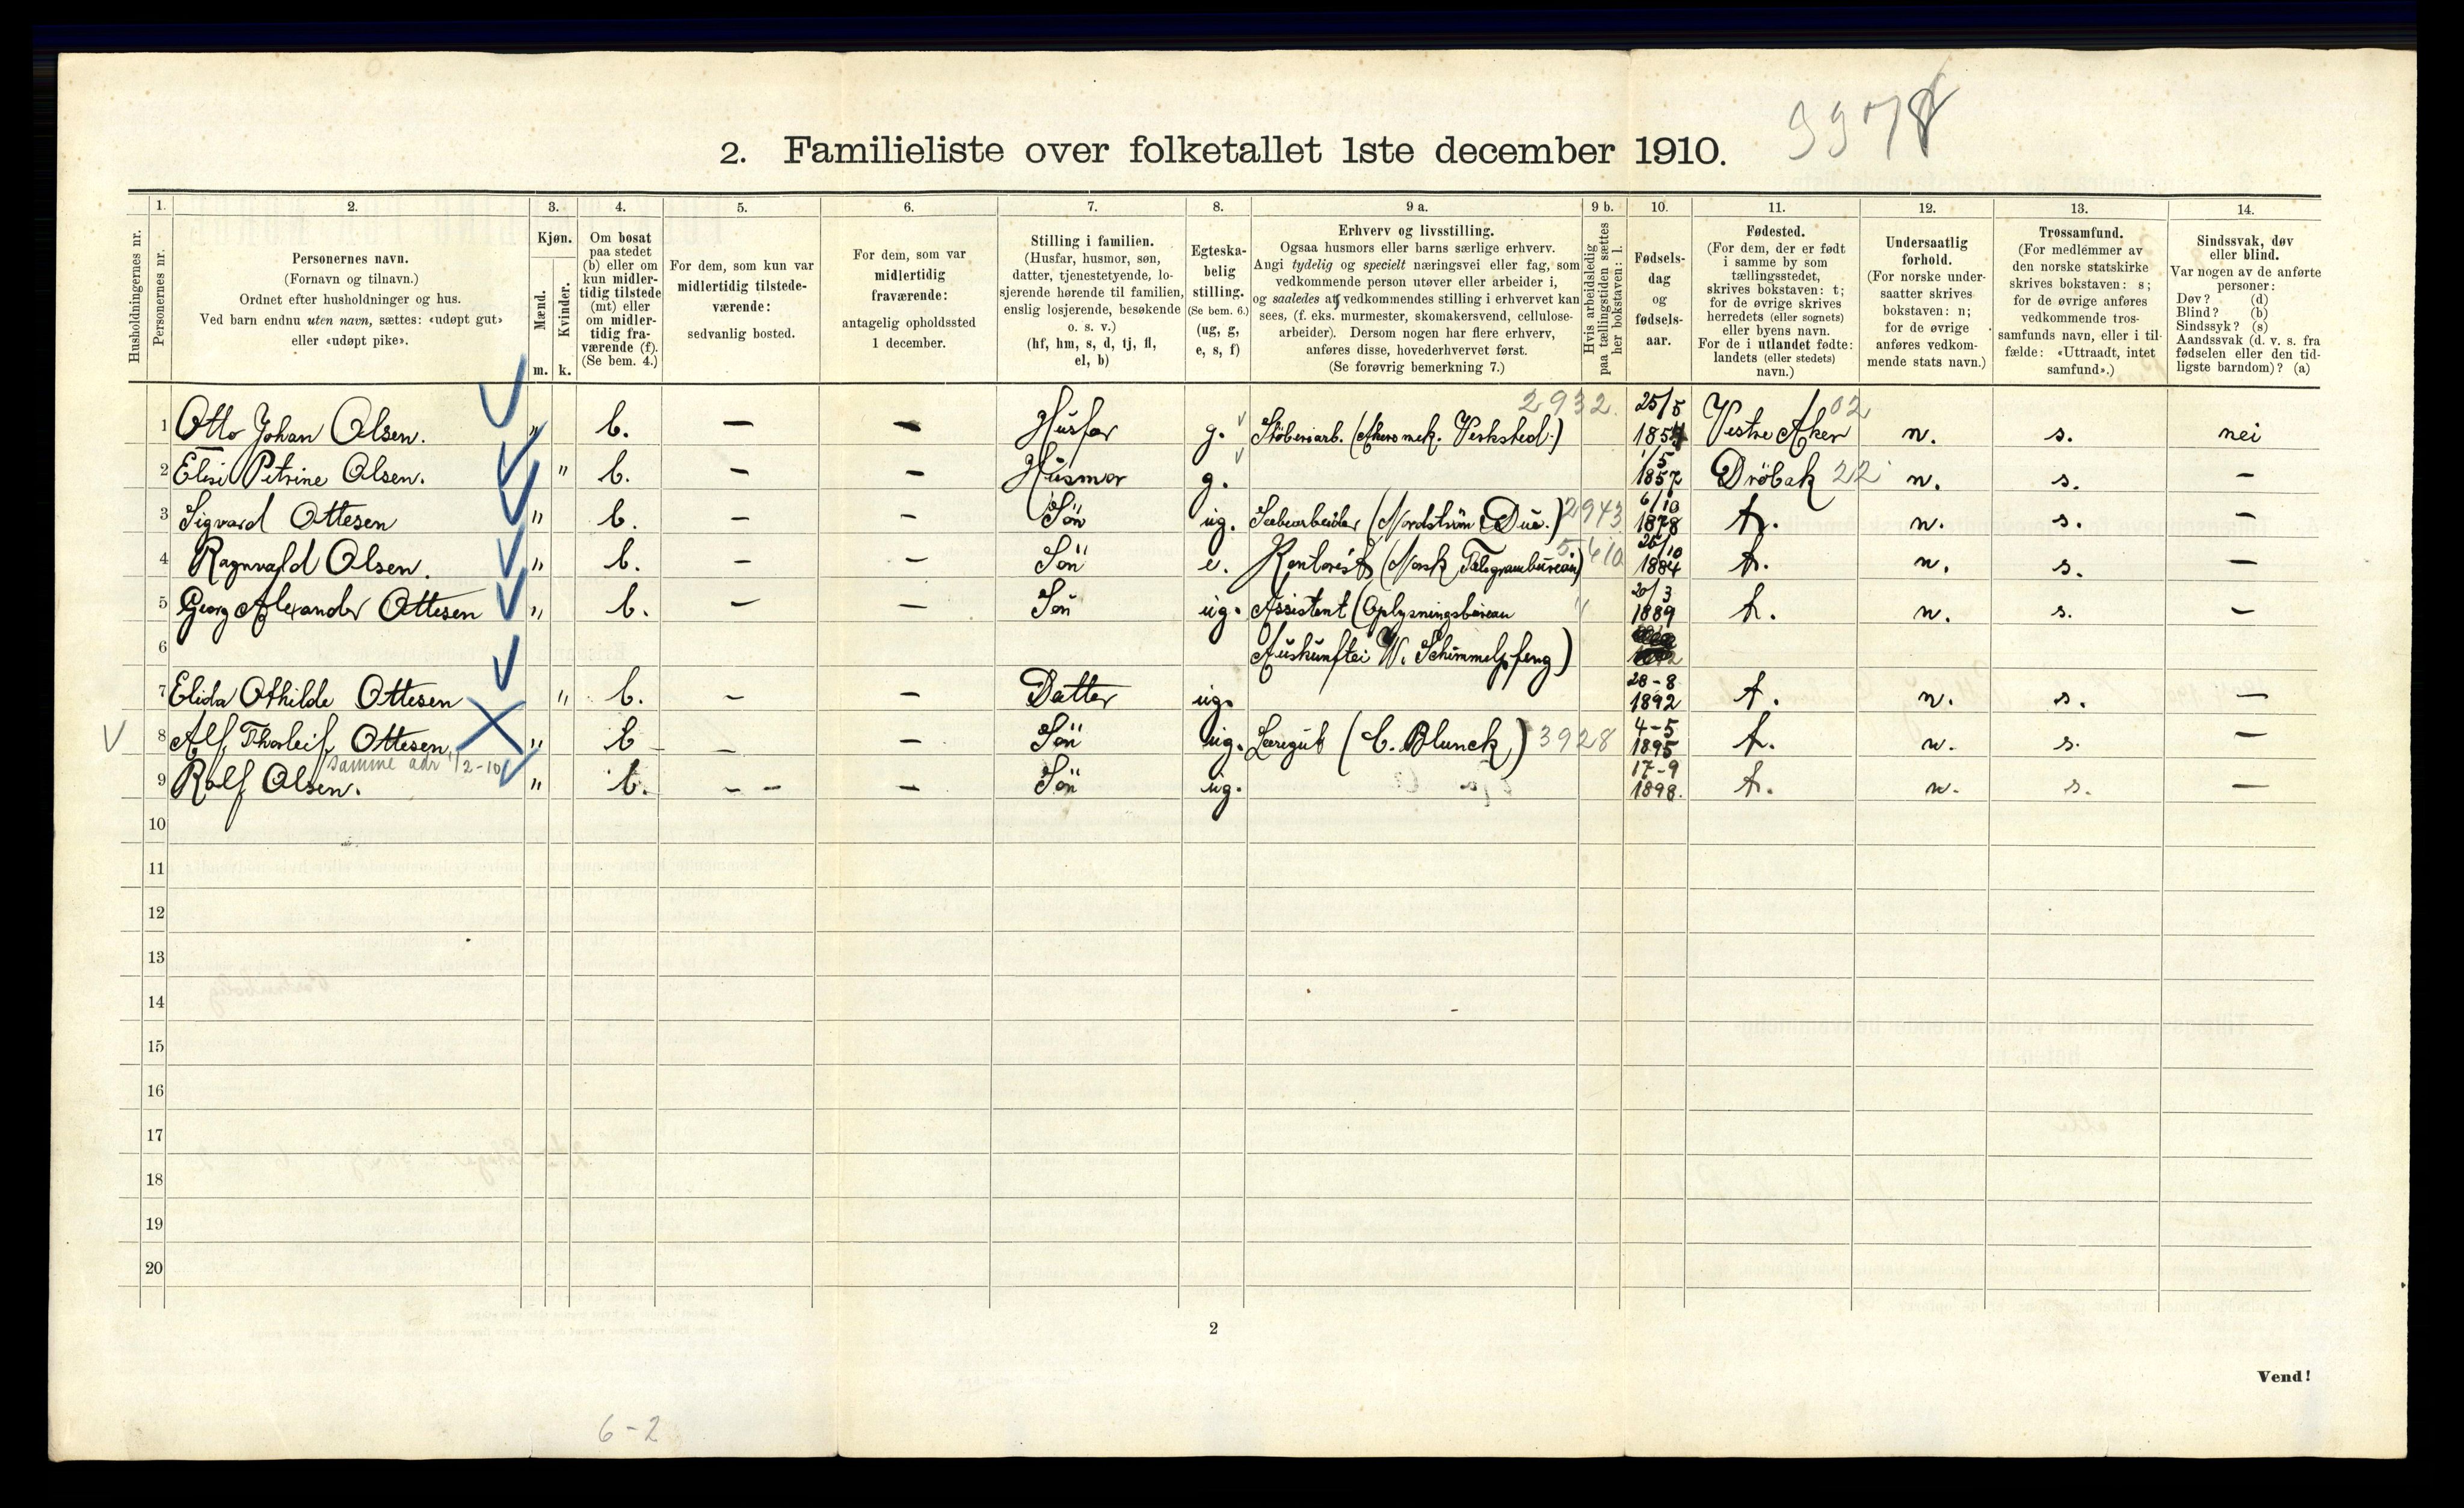 9978
2. Familieliste over folketallet 1ste december 1910.
Husholdningernes nr.
1. Personernes nr.
2. Personernes navn. (Fornavn og tilnavn.) Ordnet efter husholdninger og hus. Ved barn endnu uten navn, sættes: «udøpt gut» eller «udøpt pike».
3. Kjøn. Mænd. m. Kvinder. k.
4. Om bosat paa stedet (b) eller om kun midlertidig tilstede (mt) eller om midlertidig fraværende (f). (Se bem. 4.)
5. For dem, som kun var midlertidig tilstedeværende: sedvanlig bosted.
6. For dem, som var midlertidig fraværende: antagelig opholdssted 1 december.
7. Stilling i familien. (Husfar, husmor, søn, datter, tjenestetyende, losjerende hørende til familien, enslig losjerende, besøkende o. s. v.) (hf, hm, s, d, tj, fl, el, b)
8. Egteskabelig stilling. (Se bem. 6.) (ug, g, e, s, f)
9 a. Erhverv og livsstilling. Ogsaa husmors eller barns særlige erhverv. Angi tydelig og specielt næringsvei eller fag, som vedkommende person utøver eller arbeider i, og saaledes at vedkommendes stilling i erhvervet kan sees, (f. eks. murmester, skomakersvend, cellulosearbeider). Dersom nogen har flere erhverv, anføres disse, hovederhvervet først. (Se forøvrig bemerkning 7.)
9 b. Hvis arbeidsledig paa tællingstiden sættes her bokstaven: l.
10. Fødselsdag og fødselsaar.
11. Fødested. (For dem, der er født i samme by som tællingsstedet, skrives bokstaven: t; for de øvrige skrives herredets (eller sognets) eller byens navn. For de i utlandet fødte: landets (eller stedets) navn.)
12. Undersaatlig forhold. (For norske undersaatter skrives bokstaven: n; for de øvrige anføres vedkommende stats navn.)
13. Trossamfund. (For medlemmer av den norske statskirke skrives bokstaven: s; for de øvrige anføres vedkommende trossamfunds navn, eller i tilfælde: «Uttraadt, intet samfund».)
14. Sindssvak, døv eller blind. Var nogen av de anførte personer: Døv? (d) Blind? (b) Sindssyk? (s) Aandssvak (d. v. s. fra fødselen eller den tidligste barndom)? (a)
1 Otto Johan Olsen. " b. — — Husfar g. Stöberiarb. (Akers mek. Verksted.) 2932. 25/5 1854 Vestre Aker 02 n. s. nei
2 Elisi Petrine Olsen. " b. — — Husmor g. 1/5 1857 Dröbak 22 n. s. —
3 Sigvard Ottesen " b. — — Sön ug. Sæbearbeider (Nordström & Due.) 2943 6/10 1878 t. n. s. —
4 Ragnvald Olsen. " b. — — Sön e. Kontorist (Norsk Telegrambureau) 5610 1884 t. n. s. —
5 Georg Alexander Ottesen " b. — — Sön ug. Assistent (Oplysningsbureau 20/3 1889 t. n. s. —
6 Auskunftei W. Schimmelpfeng)
7 Elida Othilde Ottesen " b. — — Datter ug. 28-8 1892 t. n. s. —
8 Alf Thorleif Ottesen. " b — — Sön ug. Læregut (C. Blunck) 3928 4-5 1895 t. n. s. —
samme adr 1/2-10
9 Rolf Olsen. " b. — — — Sön ug. 17-9 1898. t. n. s. —
10
11
12
13
14
15
16
17
18
19
20
2
Vend!
6-2